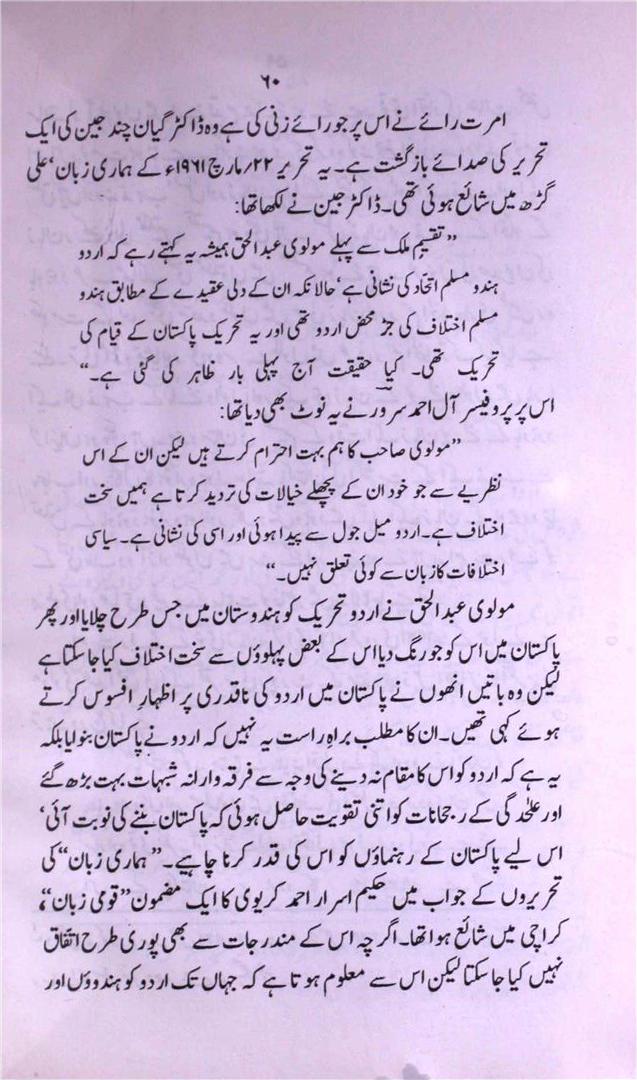 ۶۰
امرت رائے نے اس پر جو رائے زنی کی ہے وہ ڈاکٹر گیان چند جین کی ایک
تحریر کی صدائے بازگشت ہے۔ یہ تحریر ۲۲/ مارچ ۱۹۶۱ء کے ہماری زبان، علی
گڑھ میں شائع ہوئی تھی۔ ڈاکٹر جین نے لکھا تھا:
”تقسیم ملک سے پہلے مولوی عبد الحق ہمیشہ یہ کہتے رہے کہ اردو
ہندو مسلم اتحاد کی نشانی ہے، حالانکہ ان کے دلی عقیدے کے مطابق ہندو
مسلم اختلاف کی جڑ محض اردو تھی اور یہ تحریک پاکستان کے قیام کی
تحریک تھی۔ کیا حقیقت آج پہلی بار ظاہر کی گئی ہے۔“
اس پر پروفیسر آل احمد سرور نے یہ نوٹ بھی دیا تھا:
”مولوی صاحب کا ہم بہت احترام کرتے ہیں لیکن ان کے اس
نظریے سے جو خود ان کے پچھلے خیالات کی تردید کرتا ہے ہمیں سخت
اختلاف ہے۔ اردو میل جول سے پیدا ہوئی اور اسی کی نشانی ہے۔ سیاسی
اختلافات کا زبان سے کوئی تعلق نہیں۔“
مولوی عبد الحق نے اردو تحریک کو ہندوستان میں جس طرح چلایا اور پھر
پاکستان میں اس کو جو رنگ دیا اس کے بعض پہلوؤں سے سخت اختلاف کیا جا سکتا ہے
لیکن وہ باتیں انھوں نے پاکستان میں اردو کی ناقدری پر اظہار افسوس کرتے
ہوئے کہی تھیں۔ ان کا مطلب براہِ راست یہ نہیں کہ اردو نے پاکستان بنوایا بلکہ
یہ ہے کہ اردو کو اس کا مقام نہ دینے کی وجہ سے فرقہ وارانہ شبہات بہت بڑھ گئے
اور علٰحدگی کے رجحانات کو اتنی تقویت حاصل ہوئی کہ پاکستان بننے کی نوبت آئی،
اس لیے پاکستان کے رہنماؤں کو اس کی قدر کرنا چاہیے۔ ”ہماری زبان“ کی
تحریروں کے جواب میں حکیم اسرار احمد کریوی کا ایک مضمون ”قومی زبان“،
کراچی میں شائع ہوا تھا۔ اگرچہ اس کے مندرجات سے بھی پوری طرح اتفاق
نہیں کیا جا سکتا لیکن اس سے معلوم ہوتا ہے کہ جہاں تک اردو کو ہندوؤں اور